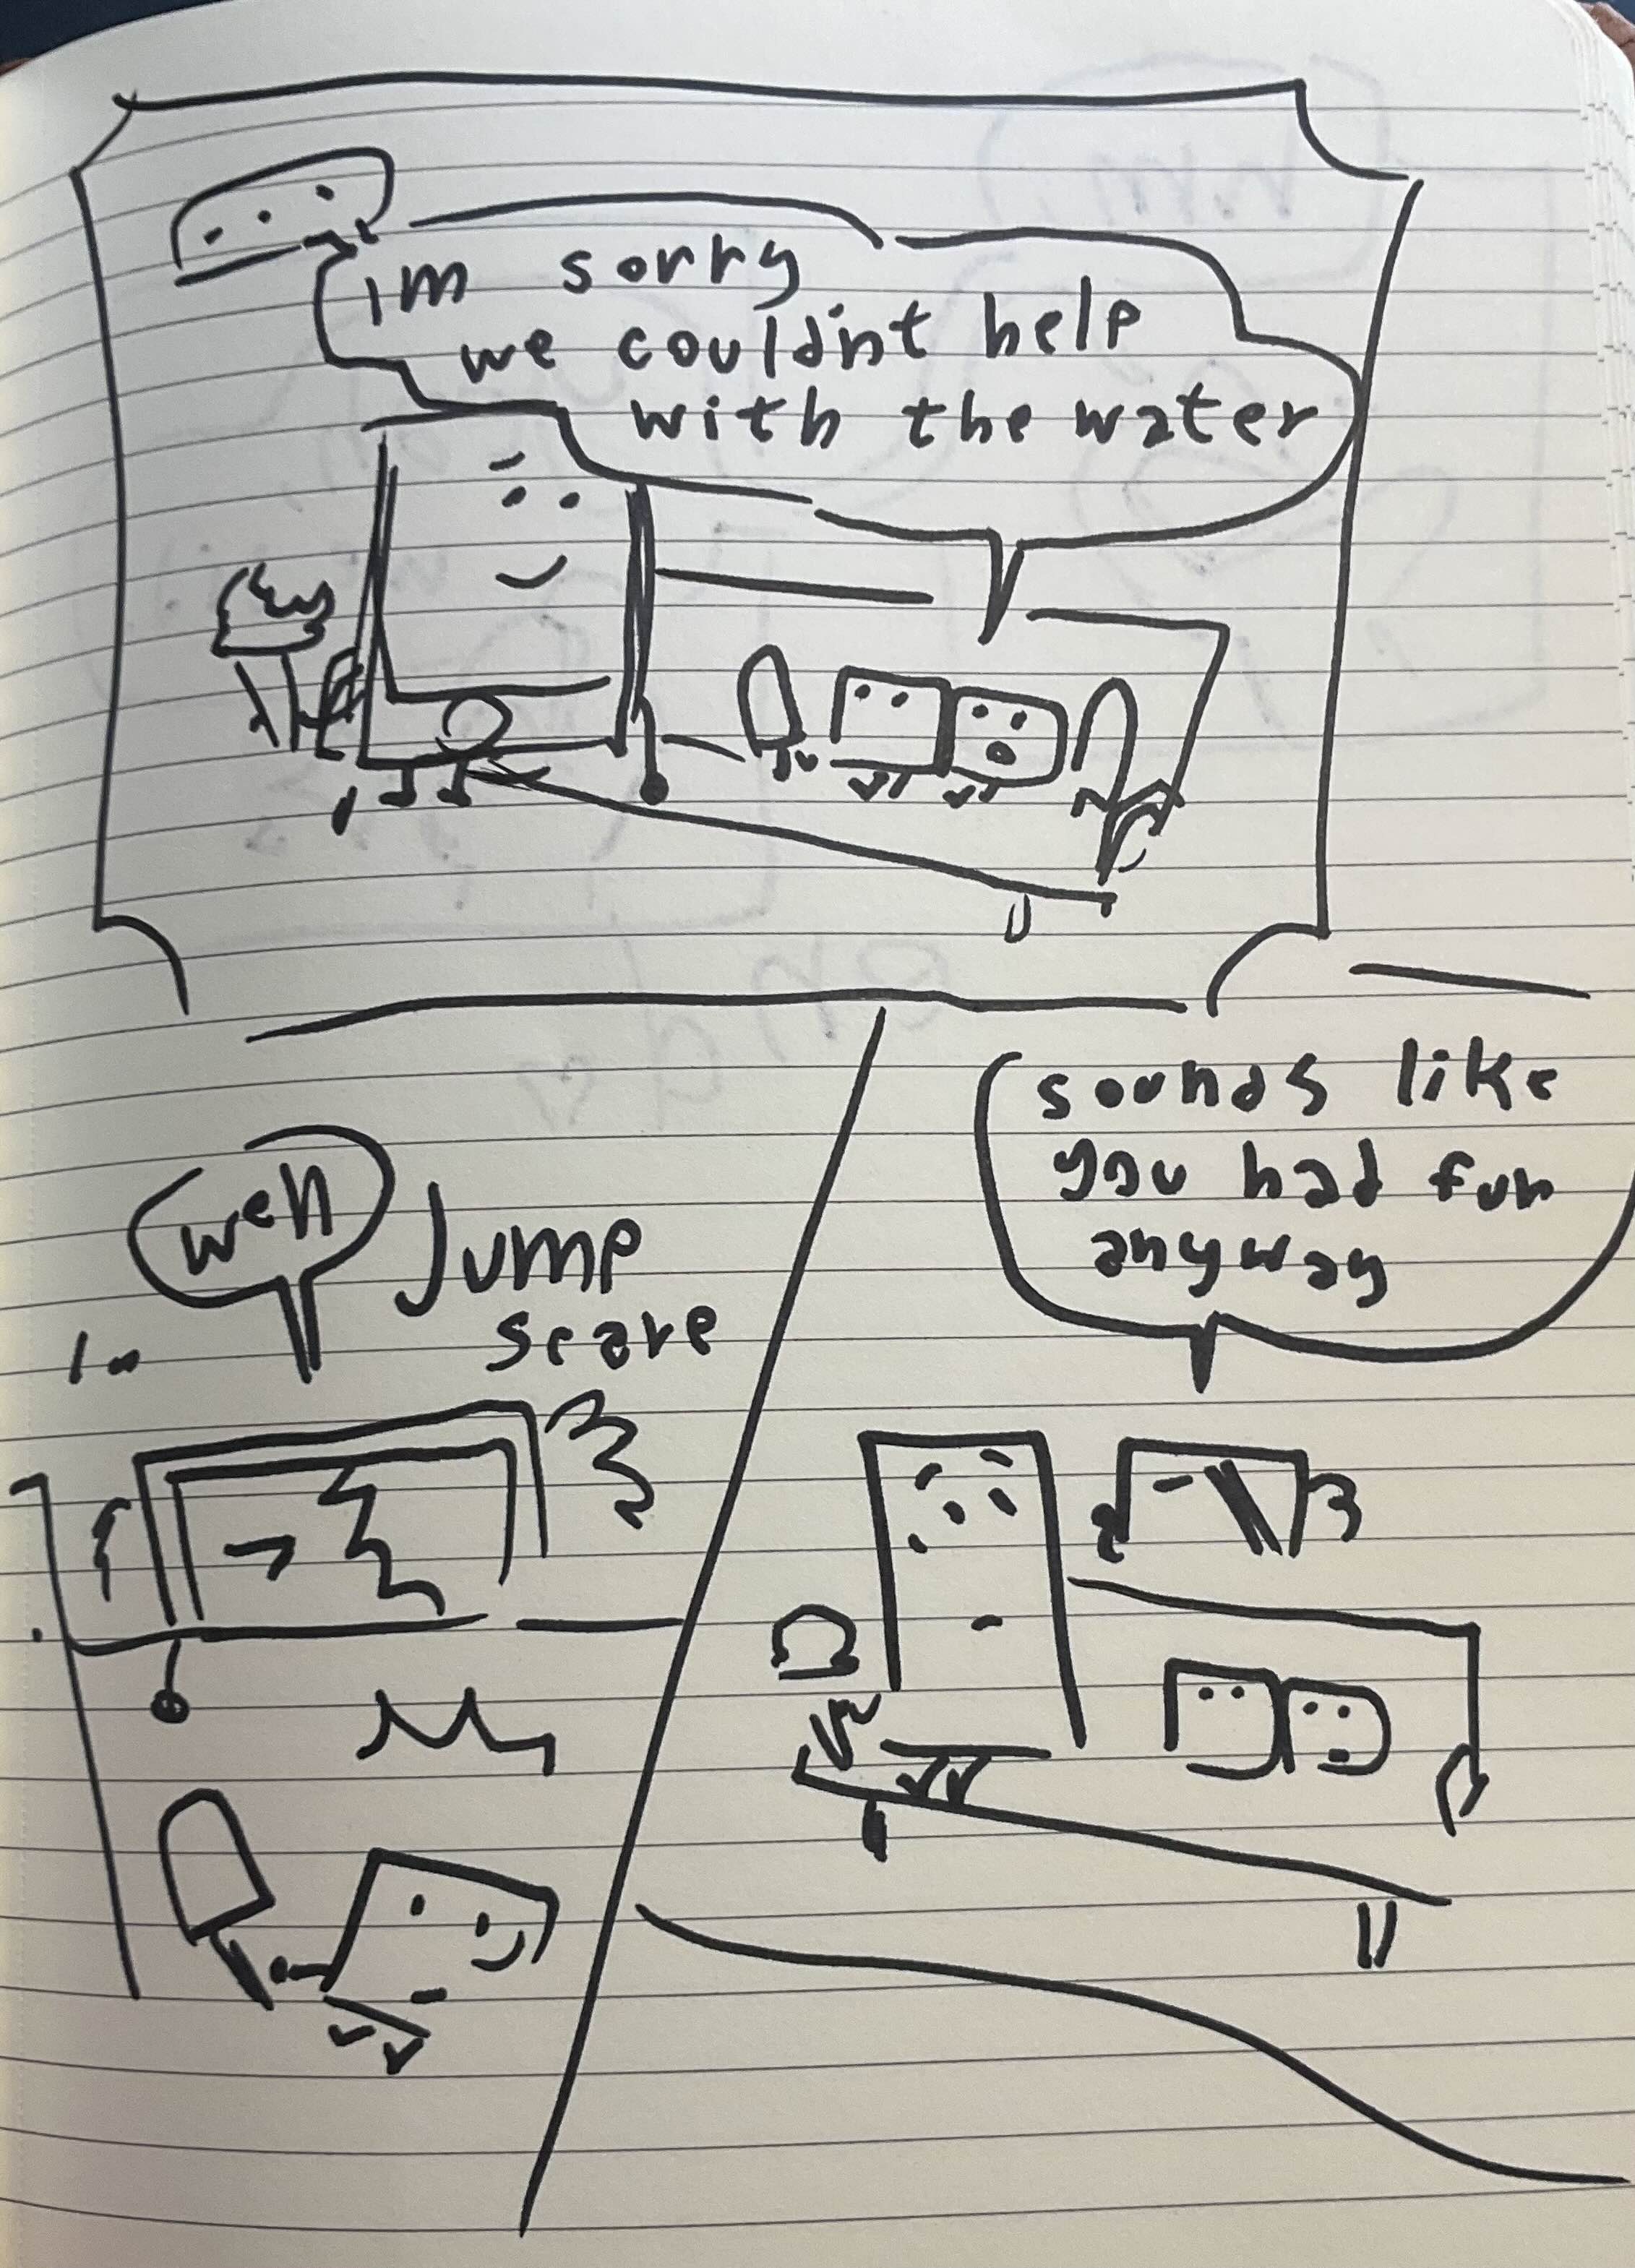 ...
im sorry
we couldn't help
with the water
weh
Jump
scare
sounds like
you had fun
anyway